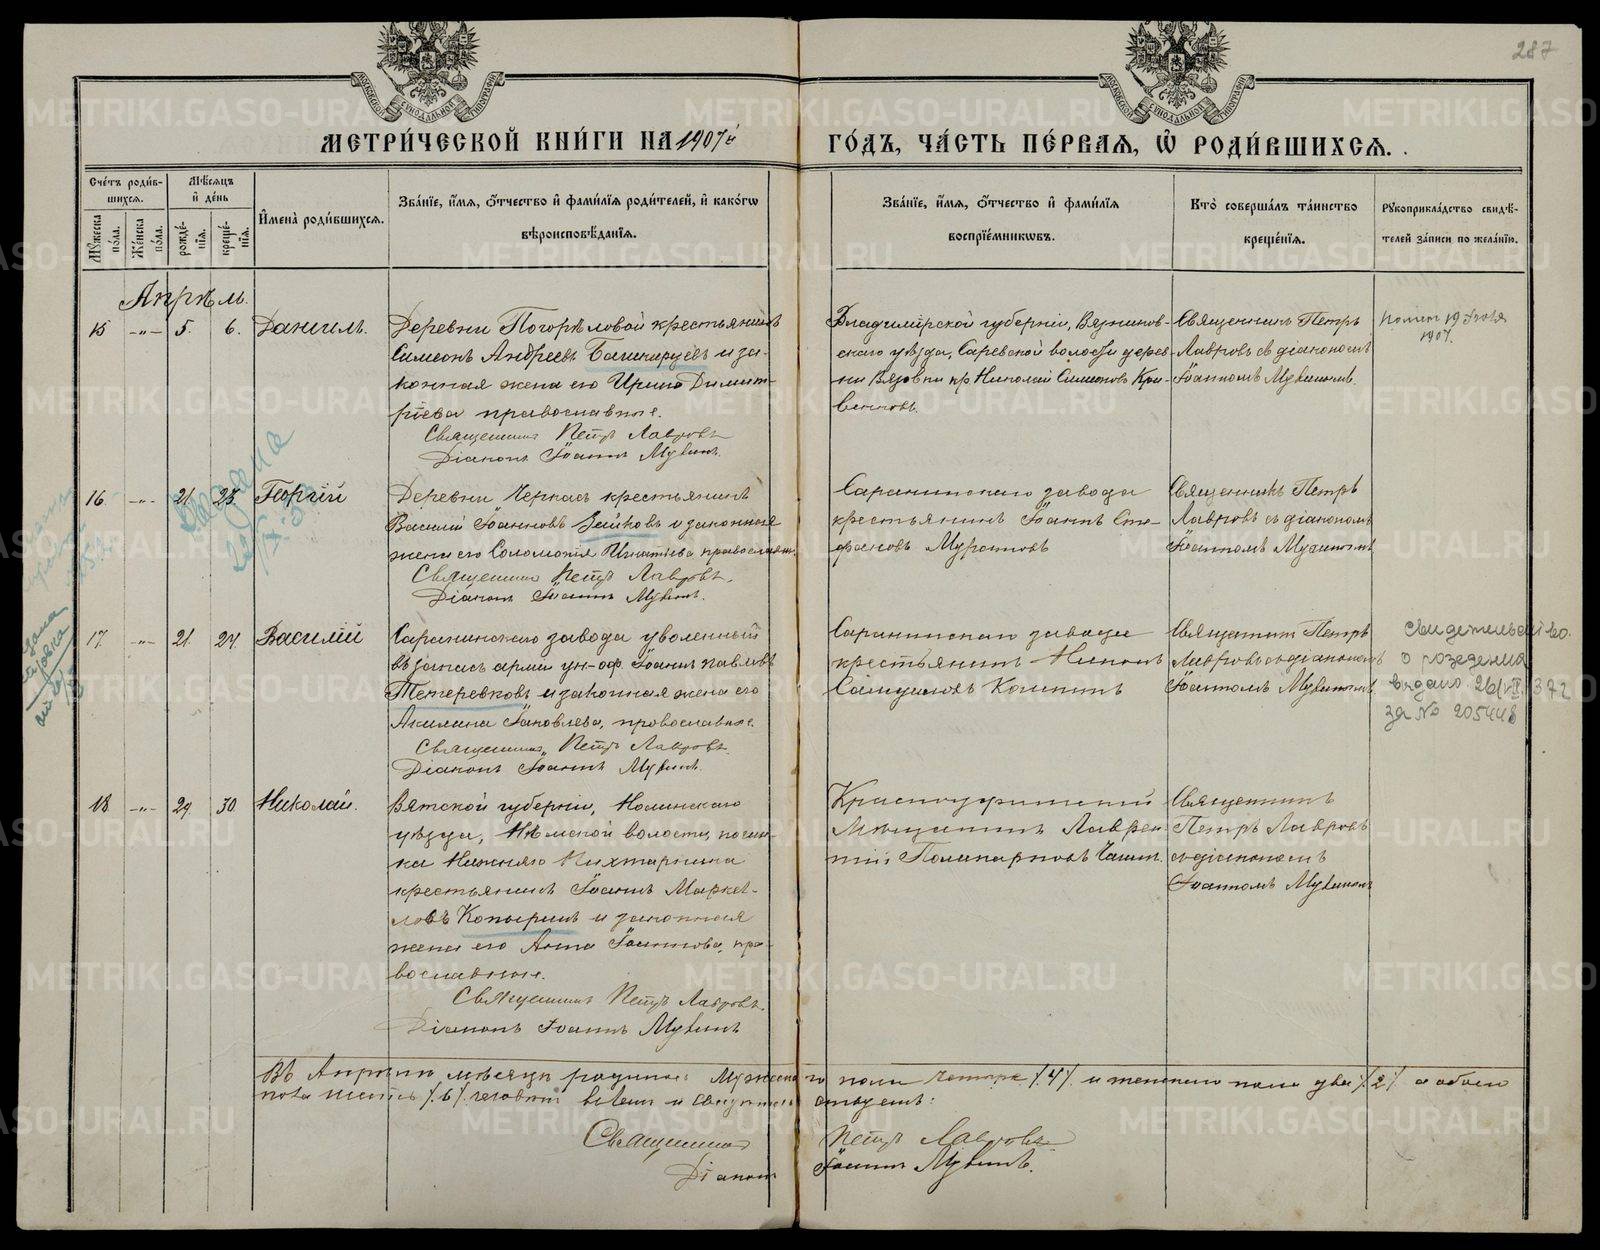 287
МЕТРИ́ЧЕСКОЙ КНИ́ГИ НА 1907й ГО́ДЪ, ЧА́СТЬ ПЕ́РВАЯ, Ѽ РОДИ́ВШИХСЯ.
Сче́тъ роди́в-
шихся.
Мѣ́сяцъ
и҆ де́нь
Мꙋ́жеска
по́ла.
Же́нска
по́ла.
рожде́-
нїѧ.
креще́-
нїѧ.
И҆мена̀ роди́вшихся.
Зва́нїе, и҆́мя, ѻ҆́тчество и҆ фами́лїя роди́телей, и҆ како́гѡ
вѣроисповѣ́данїя.
Зва́нїе, и҆́мя, ѻ҆́тчество и҆ фами́лїя
воспрїе́мниковъ.
Кто̀ соверша́лъ та́инство
креще́нїя.
Рукоприкла́дство свидѣ́-
телей за́писи по жела́нїю.
Апрѣль.
15 -„- 5. 6. Данiилъ.
Деревни Погорѣловой крестьянинъ
Симеонъ Андреевъ Башкирцевъ и за-
конная жена его Ирина Димит-
рiева православные.
Священникъ Петръ Лавровъ
Дiаконъ Iоаннъ Мухинъ.
Владимiрской губернiи, Вязников-
скаго уѣзда, Саревской волости дерев-
ни Вязовки кр Николай Симеоновъ Кри-
Священникъ Петръ
Лавровъ съ дiакономъ
Iоанномъ Мухинымъ.
помер 19 Iюля
1907.
16 -„- 21. 23. Георгiй
Деревни Черкасъ крестьянинъ
Василiй Iоанновъ Зейковъ и законная
жена его Соломонiя Игнатьева православн.
Священникъ Петръ Лавровъ.
Дiаконъ Iоаннъ Мухинъ.
Саранинскаго завода
крестьянинъ Iоаннъ Сте-
фановъ Муратовъ
Священникъ Петръ
Лавровъ съ дiакономъ
Iоанномъ Мухинымъ
17. -„- 21. 24. Василiй
Саранинскаго завода уволенный
въ запасъ армiи ун-оф. Iоаннъ Павловъ
Тетеревковъ и законная жена его
Акилина Iаковлева, православные.
Священникъ Петръ Лавровъ.
Дiаконъ Iоаннъ Мухинъ.
Саранинскаго завода
крестьянинъ
Священникъ Петръ
Лавровъ съ дiакономъ
Iоанномъ Мухинымъ
Свидетельство
о рождении
выдано 26/VII 1972
за № 205448
18 -„- 29. 30 Николай.
Вятской губернiи, Нолинскаго
уѣзда, Нѣмской волости, почин-
ка Нижняго
крестьянинъ Iоаннъ Маркел-
ловъ Копыринъ и законная
жена его Анна Iоаннова, пра-
вославные.
Священникъ Петръ Лавровъ.
Дiаконъ Iоаннъ Мухинъ
Красноуфимскiй
Мѣщанинъ Лаврен-
тiй Поликарповъ
Священникъ
Петръ Лавровъ
съ дiакономъ
Iоанномъ Мухинымъ
Въ Апрѣлѣ мѣсяцѣ родилось Мужеска го пола четыре /4/. и женскаго пола два /2/. а обоего
пола шесть /6/. человѣкъ
Священникъ Петръ Лавровъ
Дiаконъ Iоаннъ Мухинъ.